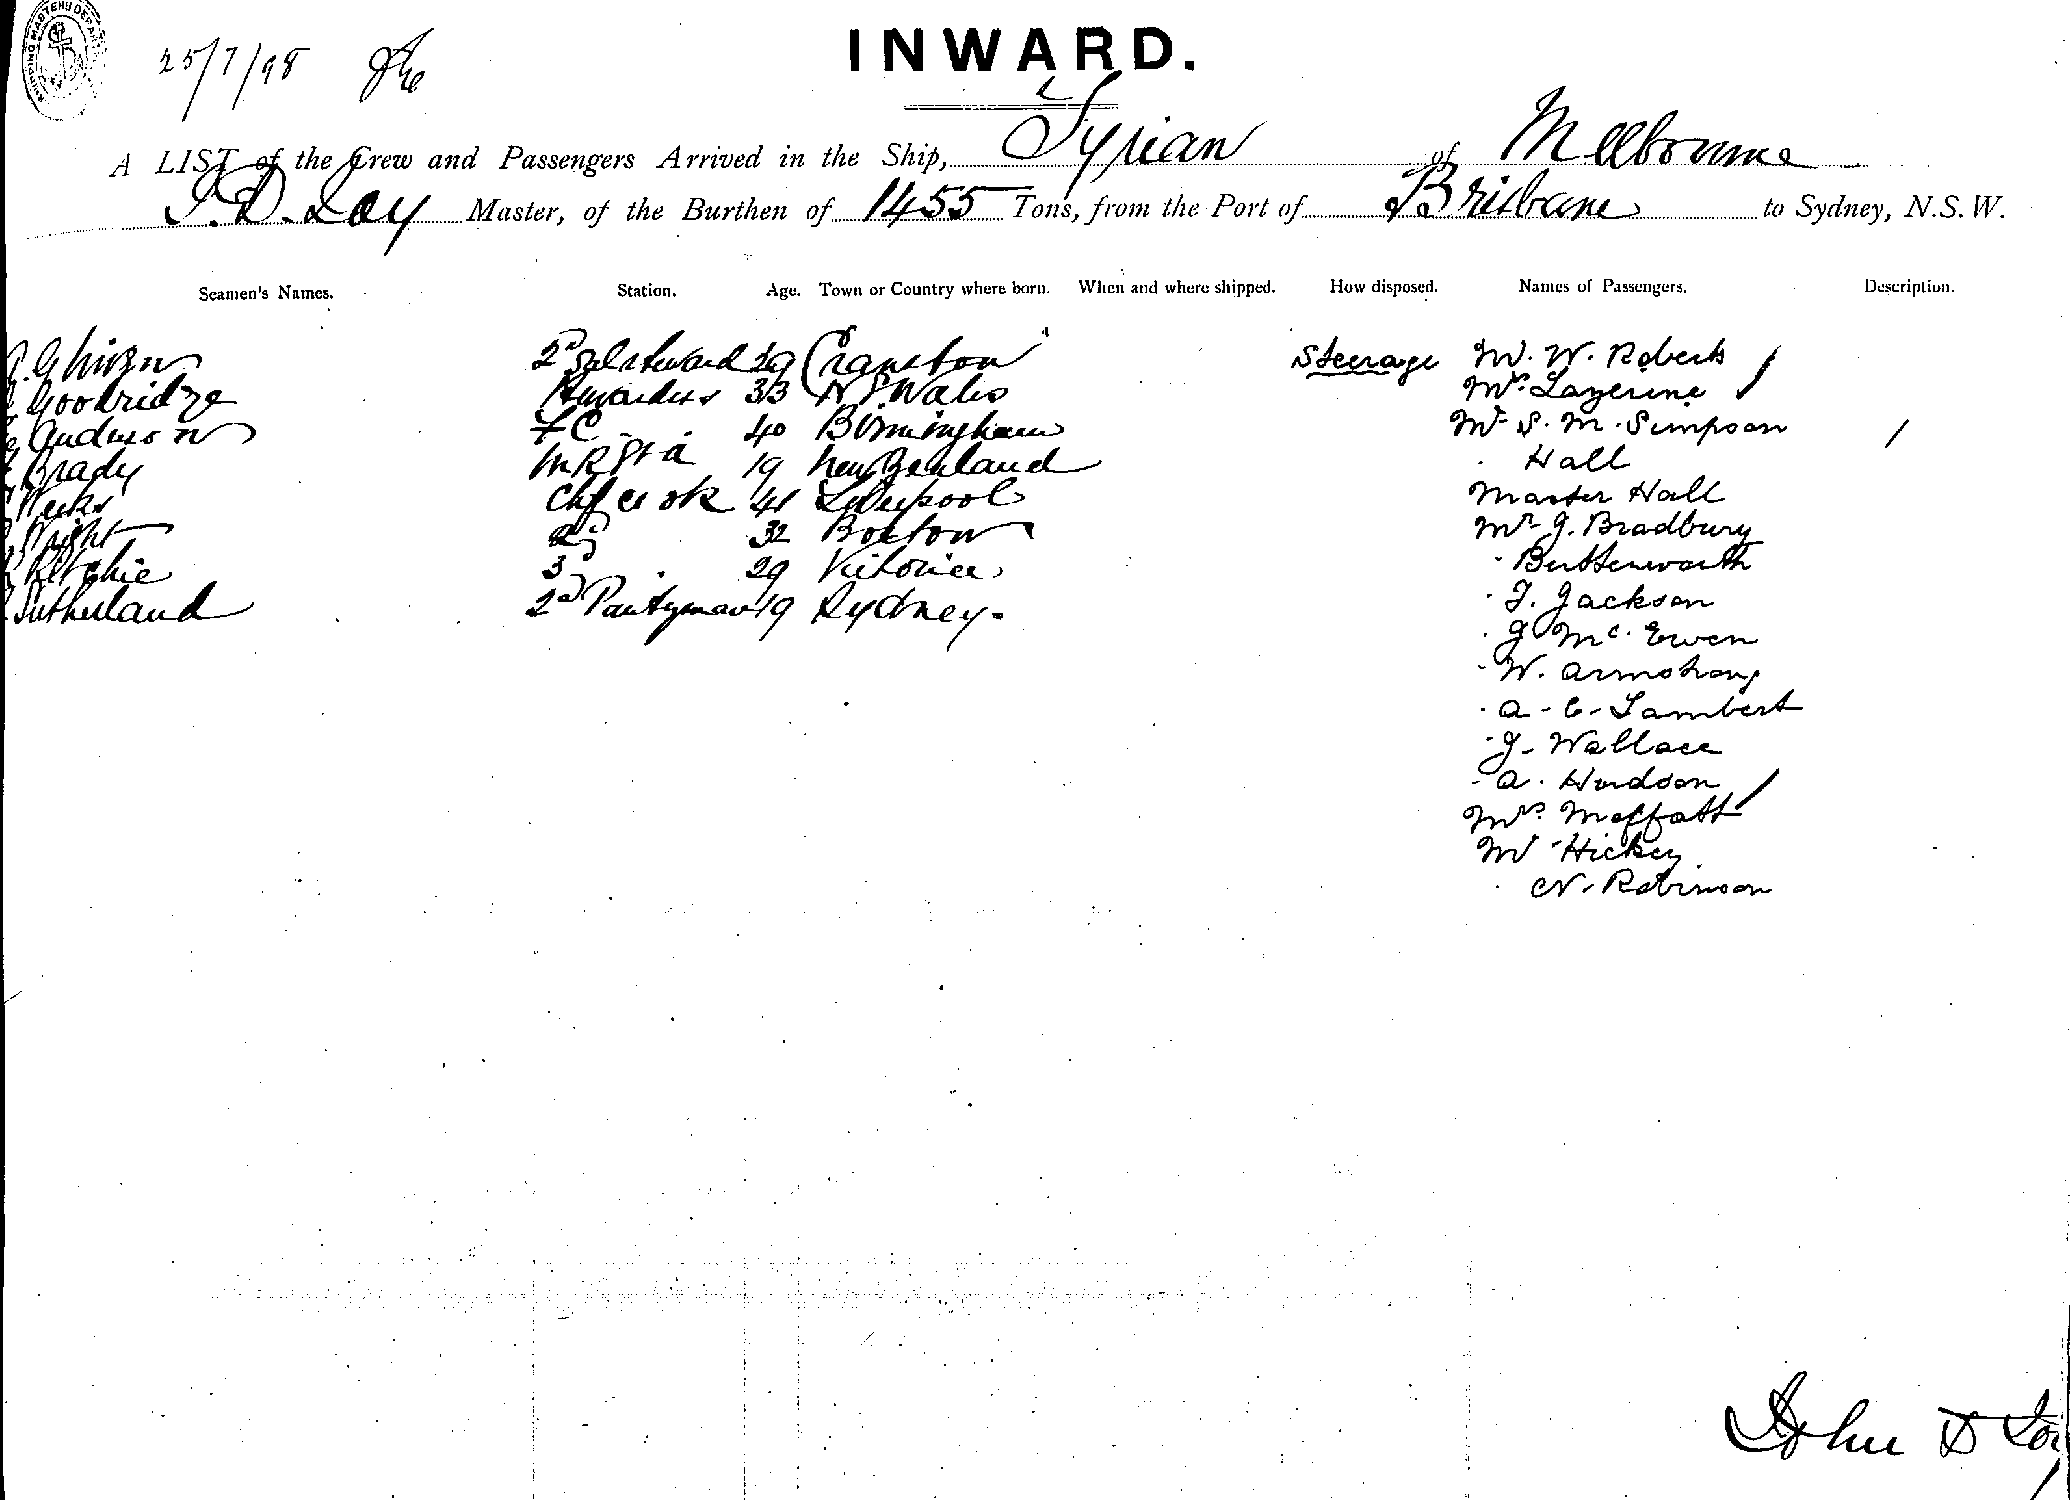 25/7/98
INWARD.
A LIST of the Crew and Passengers Arrived in the Ship, Tyrian of Melbourne
J. D. Loy Master, of the Burthen of 1455 Tons, from the Port of Brisbane to Sydney, N.S.W.
Seamen's Names. Station. Age. Town or Country where born. When and where shipped. How disposed. Names of Passengers. Description.
2d Sal Steward 29 Cranston Steerage Mr. W. Roberts
Goodridge Stewardess 33 N S Wales Mrs Lazerine
Anderson FC 40 Birmingham Mr S. M. Simpson
Brady 19 New Zealand Hall
Weeks Chf Cook 41 Liverpool Master Hall
Wright 2d 32 Bolton Mr J. Bradbury
Ritchie 3d 29 Victoria Butterworth
Sutherland 2d Pantryman 19 Sydney. J. Jackson
J Mc. Ewen
W. Armstrong
A. E. Lambert
J. Wallace
A. Hudson
Mrs Moffatt
Mr Hickey
N. Robinson
John D Loy